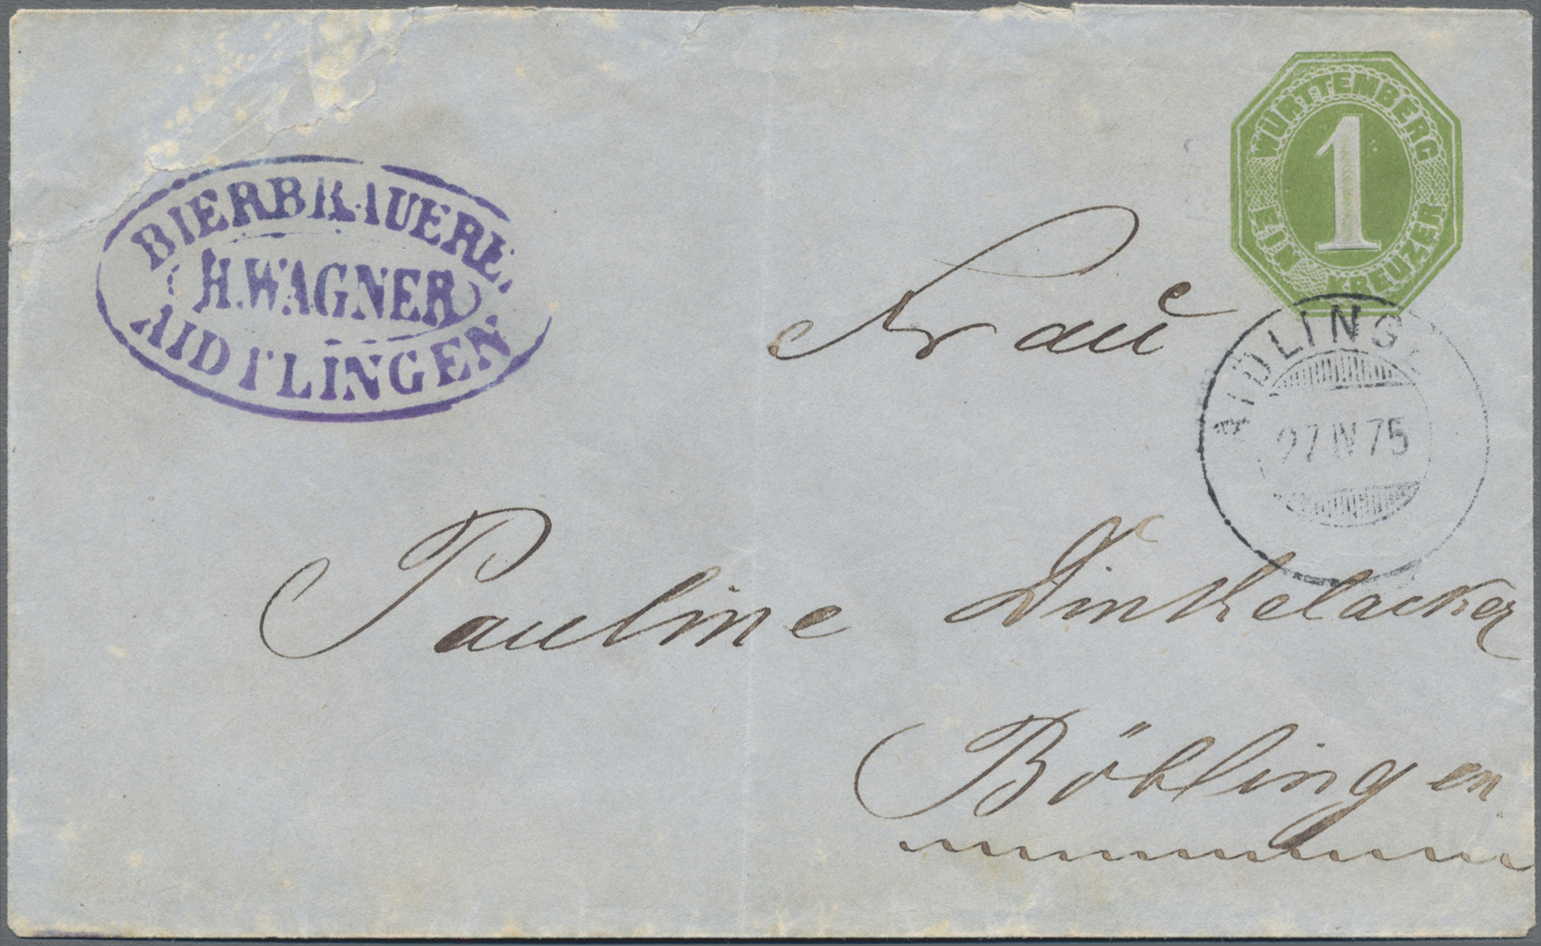 BIERBRAUEREI
H. WAGNER
AIDTLINGEN
WÜRTTEMBERG
1
EIN KREUZER
AIDLINGEN
27 IV 75
Frau
Pauline Dinkelacker
Böblingen